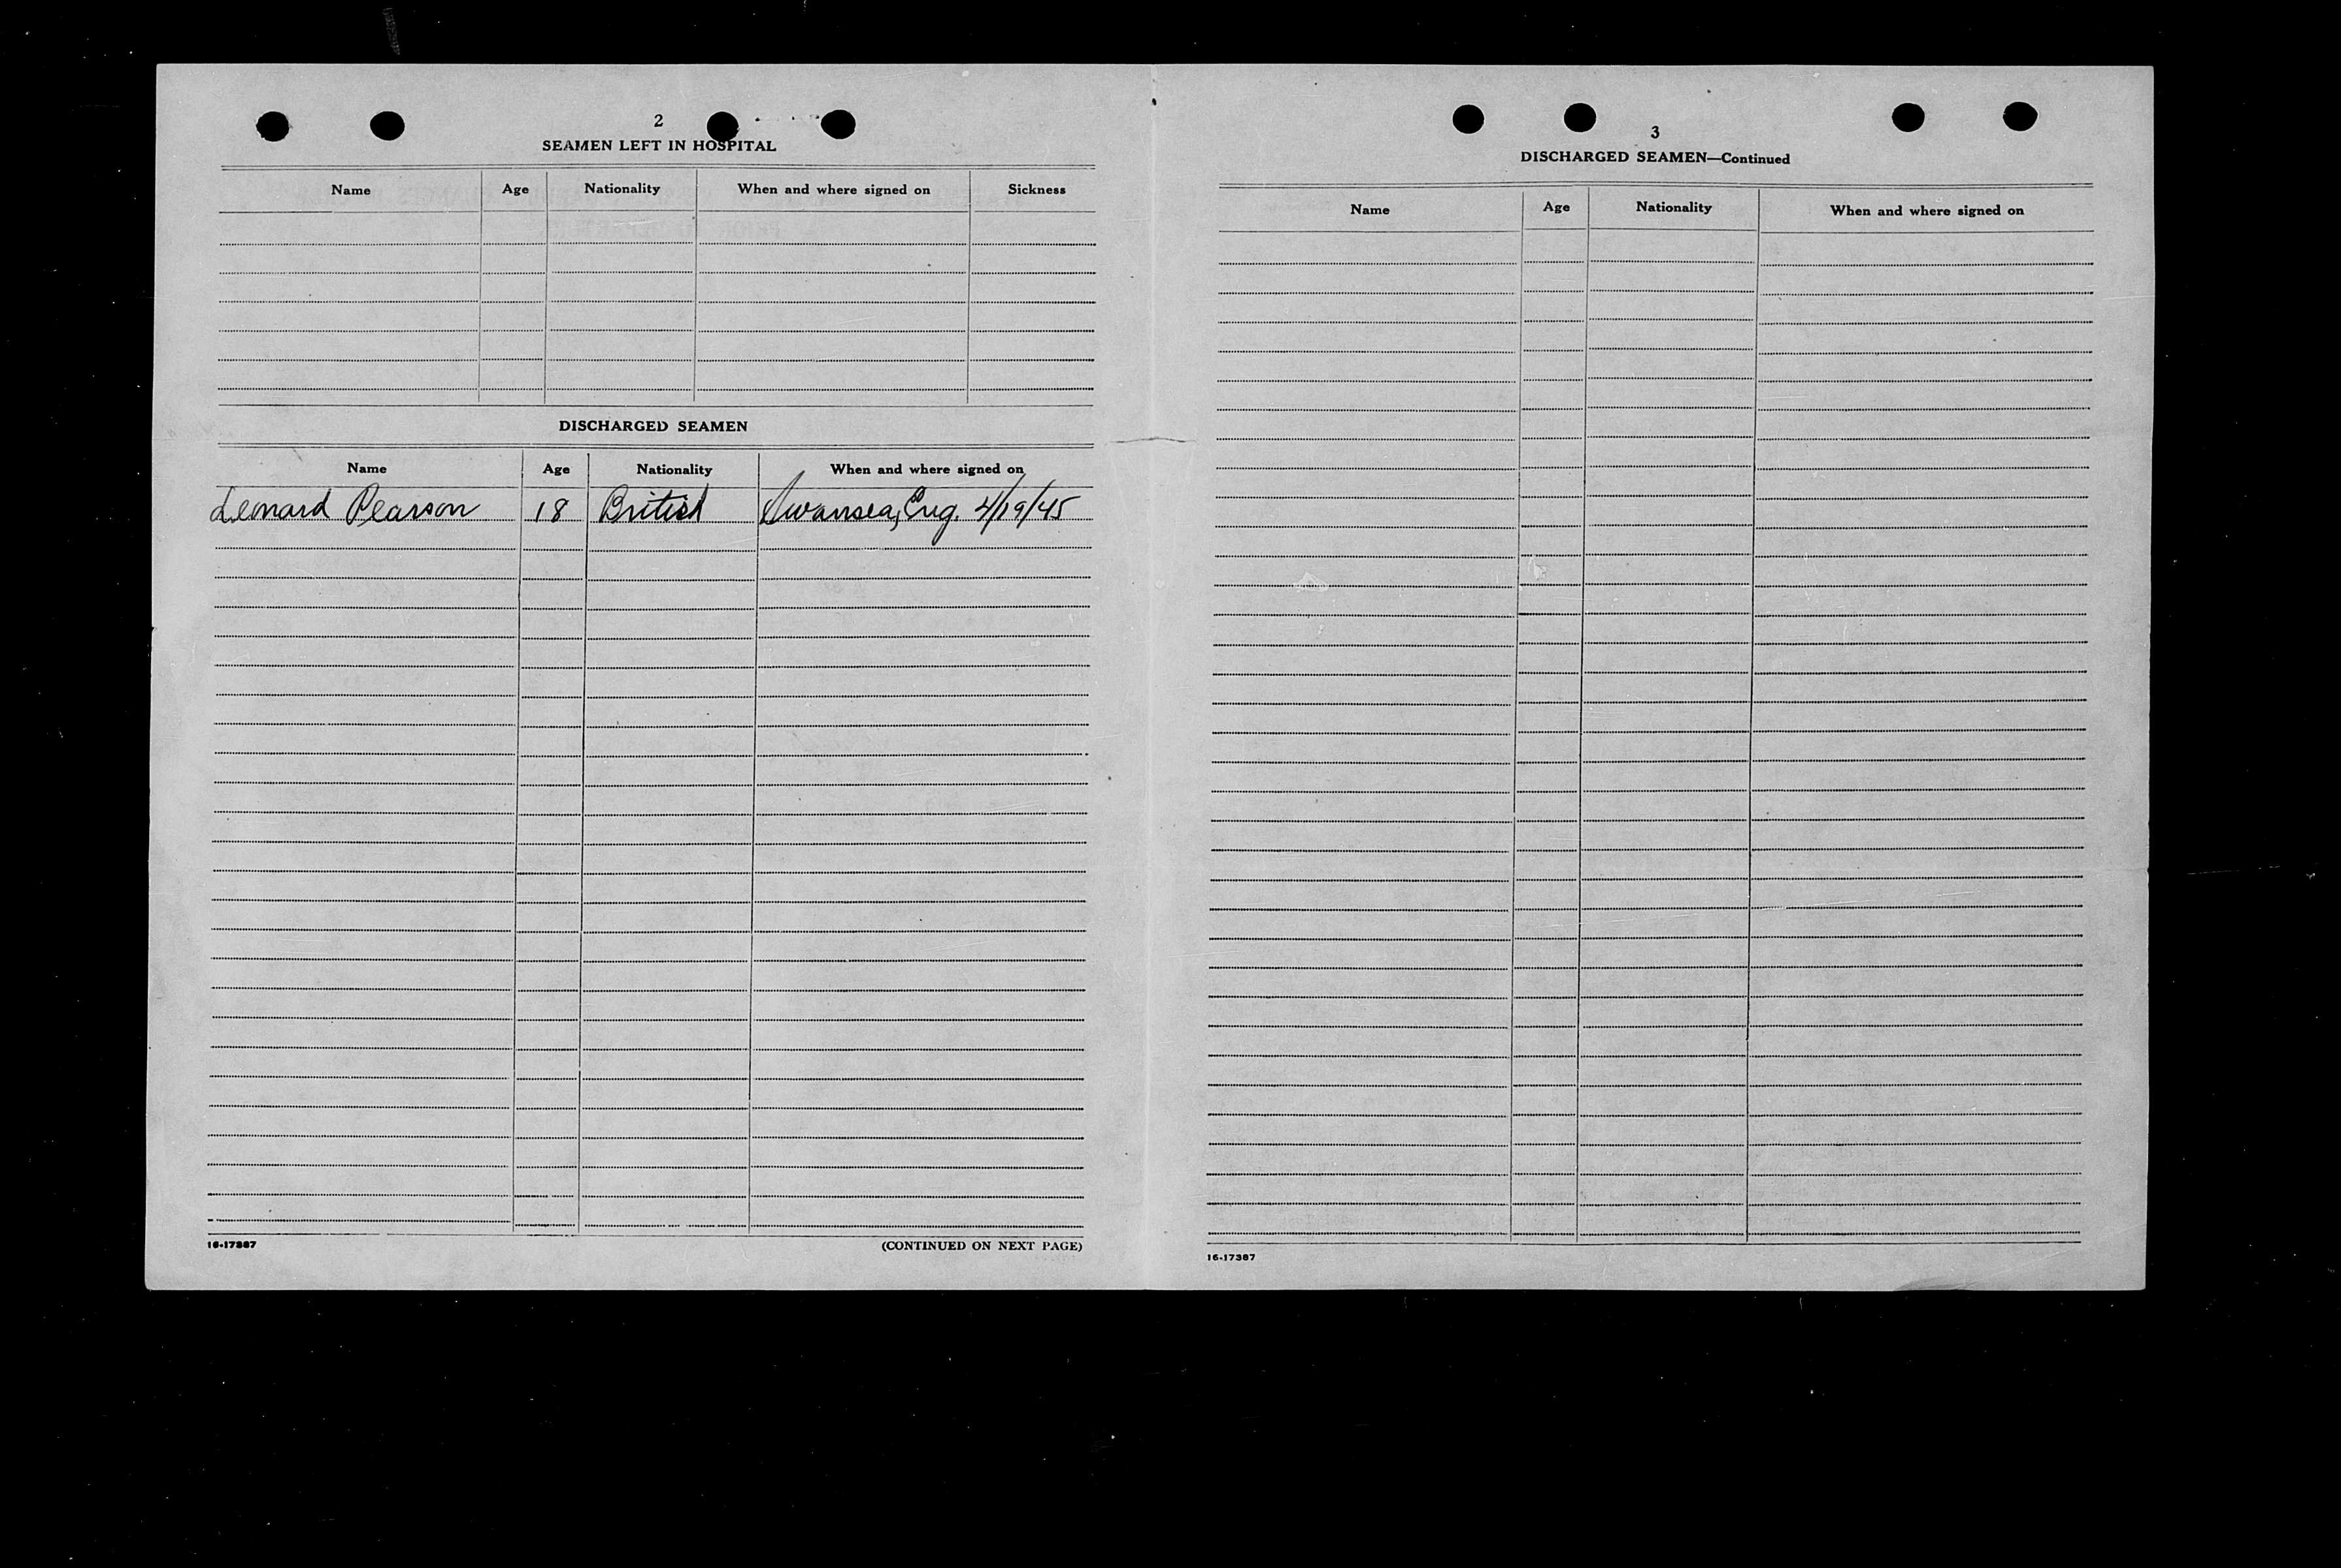 2
SEAMEN LEFT IN HOSPITAL
Name Age Nationality When and where signed on Sickness
DISCHARGED SEAMEN
Name Age Nationality When and where signed on
Leonard Pearson 18 British Swansea, Eng. 4/19/45
16-17387 (CONTINUED ON NEXT PAGE)
3
DISCHARGED SEAMEN—Continued
Name Age Nationality When and where signed on
16-17387